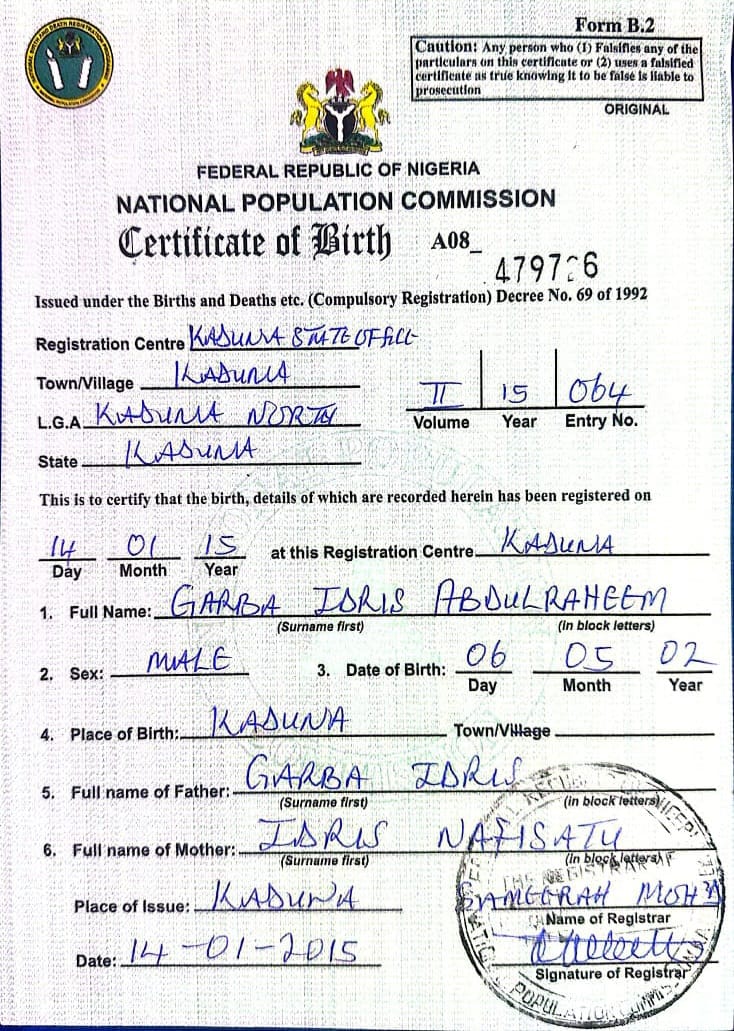 Form B.2
Caution: Any person who (1) Falsifies any of the
particulars on this certificate or (2) uses a falsified
certificate as true knowing it to be false is liable to
prosecution
ORIGINAL
FEDERAL REPUBLIC OF NIGERIA
NATIONAL POPULATION COMMISSION
Certificate of Birth A08_
Issued under the Births and Deaths etc. (Compulsory Registration) Decree No. 69 of 1992
Registration Centre KADUNA STATE OFFICE
Town/Village KADUNA
II 15 064
L.G.A KADUNA NORTH
Volume Year Entry No.
State KADUNA
This is to certify that the birth, details of which are recorded herein has been registered on
14 01 15 at this Registration Centre KADUNA
Day Month Year
1. Full Name: GARBA IDRIS ABDULRAHEEM
(Surname first) (In block letters)
2. Sex: MALE 3. Date of Birth: 06 05 02
Day Month Year
4. Place of Birth: KADUNA Town/Village
5. Full name of Father: GARBA IDRIS
(Surname first) (in block letters)
6. Full name of Mother: IDRIS NAFISATU
(Surname first) (in block letters)
Place of Issue: KADUNA
Name of Registrar
Date: 14-01-2015
Signature of Registrar